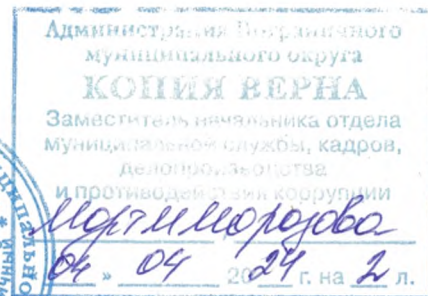 Администрация Пограничного
муниципального округа
КОПИЯ ВЕРНА
Заместитель начальника отдела
муниципальной службы, кадров,
делопроизводства
и противодействия коррупции
Морозова
04 » 04 2024 г. на 2 л.